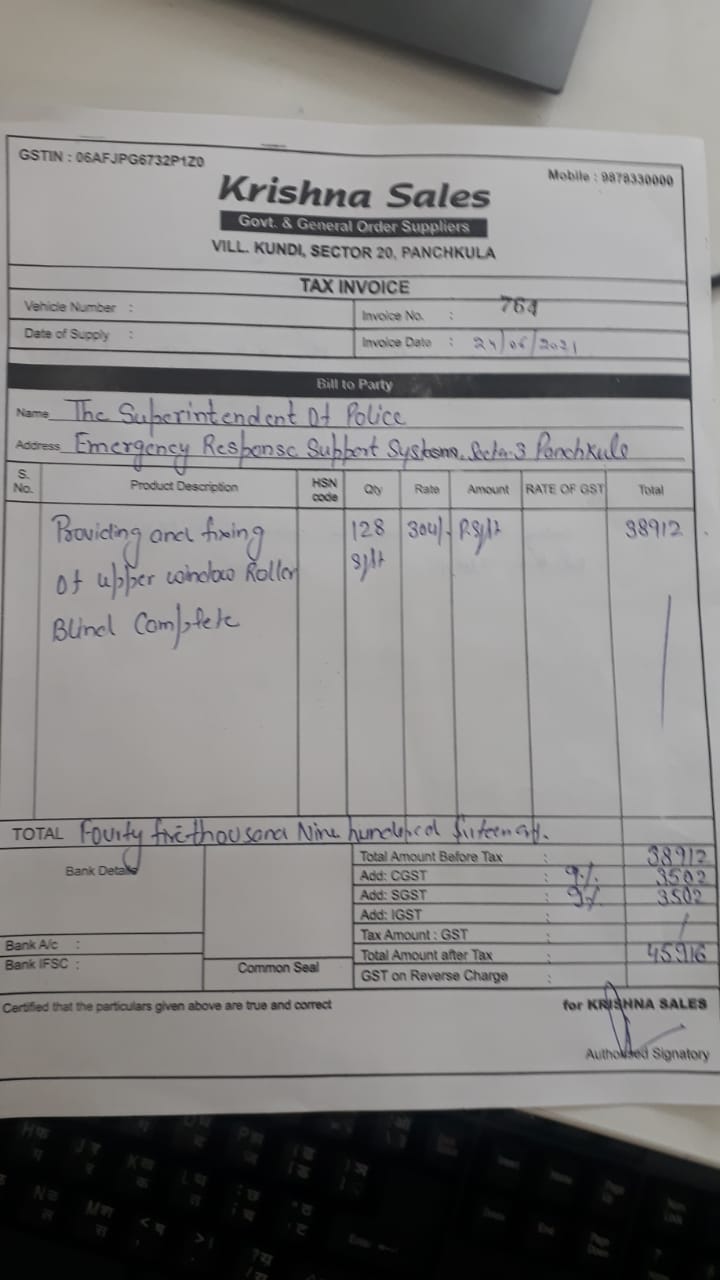 GSTIN : 06AFJPG6732P1Z0
Mobile : 9878330000
Krishna Sales
Govt. & General Order Suppliers
VILL. KUNDI, SECTOR 20, PANCHKULA
TAX INVOICE
Vehicle Number :
Invoice No. : 764
Date of Supply :
Invoice Date : 24/06/2021
Bill to Party
Name The Superintendent Of Police
Address Emergency Response Support Systems, Secto-3 Panchkula
S. No. Product Description HSN code Qty Rate Amount RATE OF GST Total
Providing and fixing 128 304/- P.Sqft 38912
Of upper window Roller Sqft
Blind Complete
TOTAL Fourty five thousand Nine hundered Sixteen
Bank Details
Total Amount Before Tax : 38912
Add: CGST : 9% 3502
Add: SGST : 9% 3502
Add: IGST :
Tax Amount : GST :
Bank A/c :
Total Amount after Tax : 45916
Bank IFSC :
Common Seal
GST on Reverse Charge :
Certified that the particulars given above are true and correct
for KRISHNA SALES
Authorised Signatory